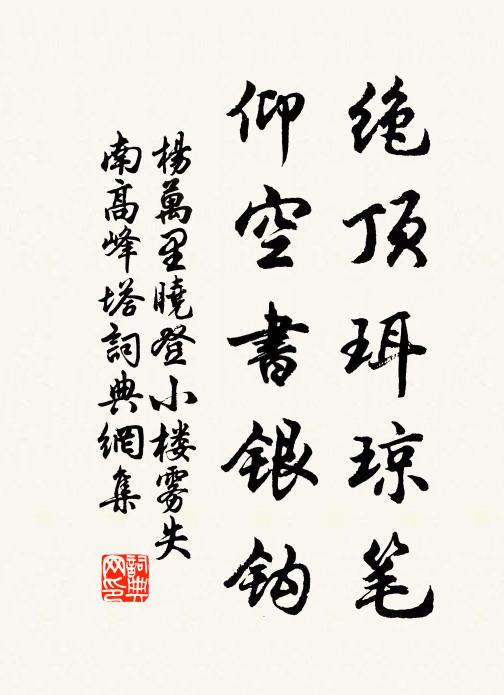 绝顶珥琼笔
仰空書银钩
楊萬里曉登小楼雾失
南高峰塔詞典網集
詞典网印